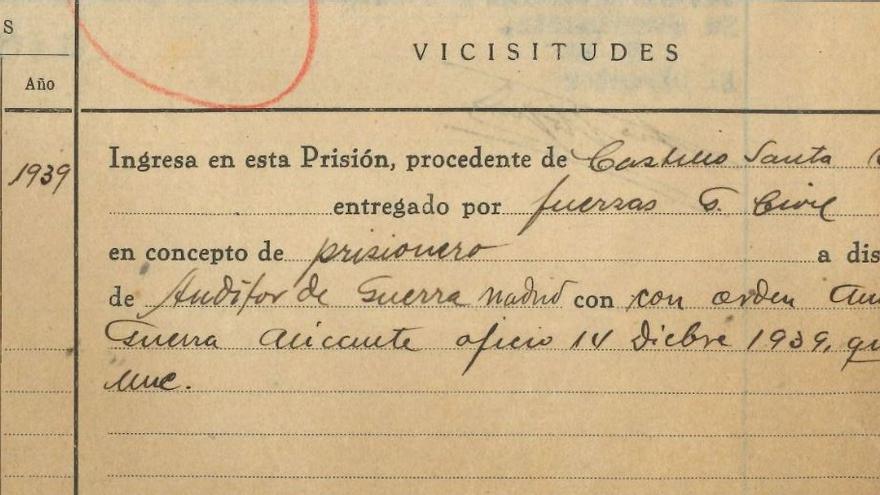 S
VICISITUDES
Año
1939
Ingresa en esta Prisión, procedente de Castillo Santa
entregado por fuerzas G. Civil
en concepto de prisionero a dis
de Auditor de Guerra Madrid con con orden Au
Guerra Alicante oficio 14 Dicbre 1939, qu
une.